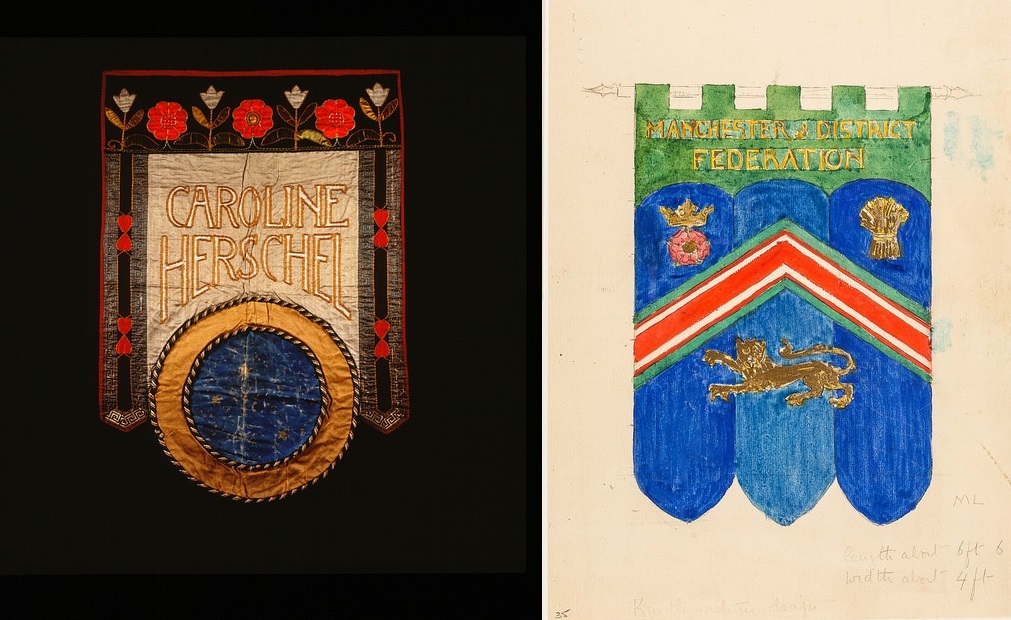 CAROLINE
HERSCHEL
MANCHESTER & DISTRICT
FEDERATION
ML
length about 6ft 6
width about 4ft
design
35